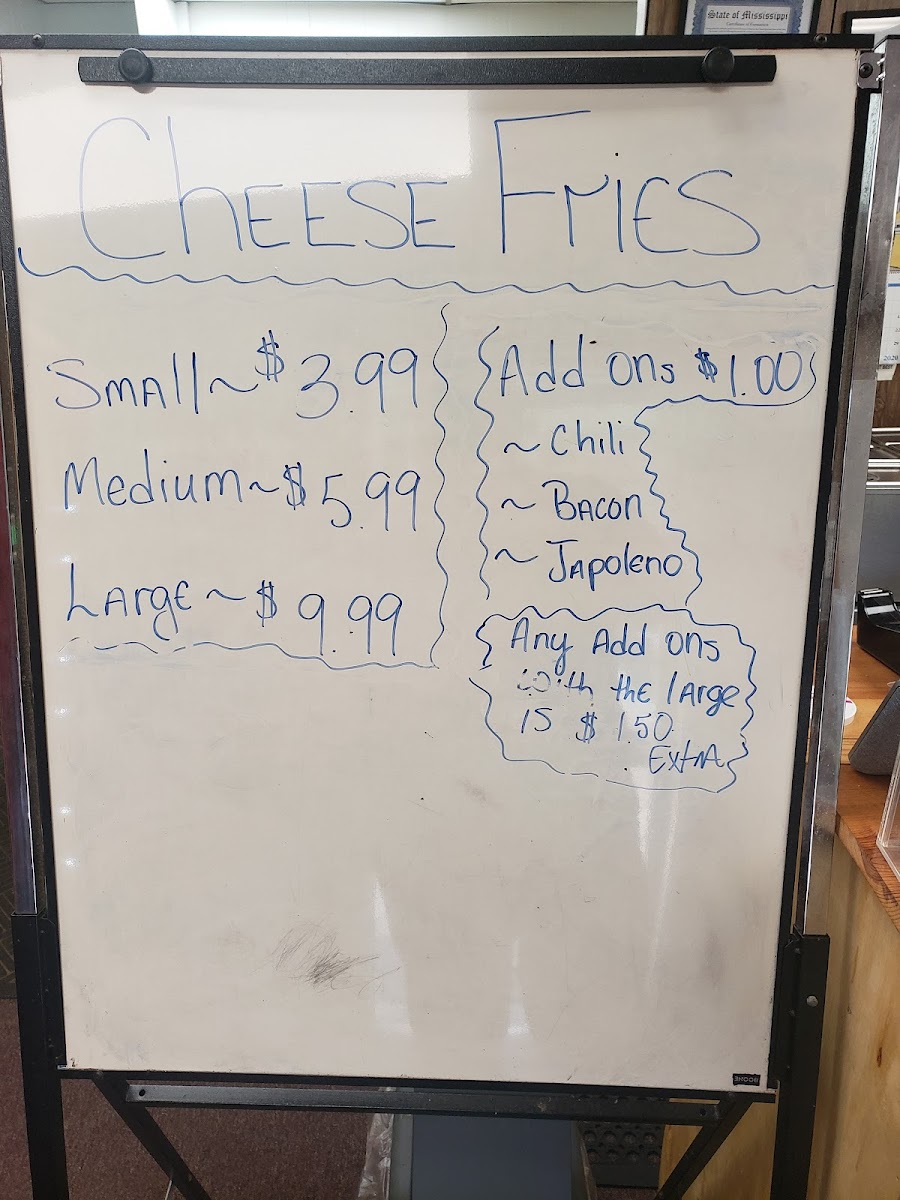 State of Mississippi
CHEESE FRIES
Small ~ $ 3.99
Medium ~ $ 5.99
Large ~ $ 9.99
Add ons $ 1.00
~ Chili
~ Bacon
~ Japoleno
Any Add ons
with the large
is $ 1.50
Extra
2020
BOONE